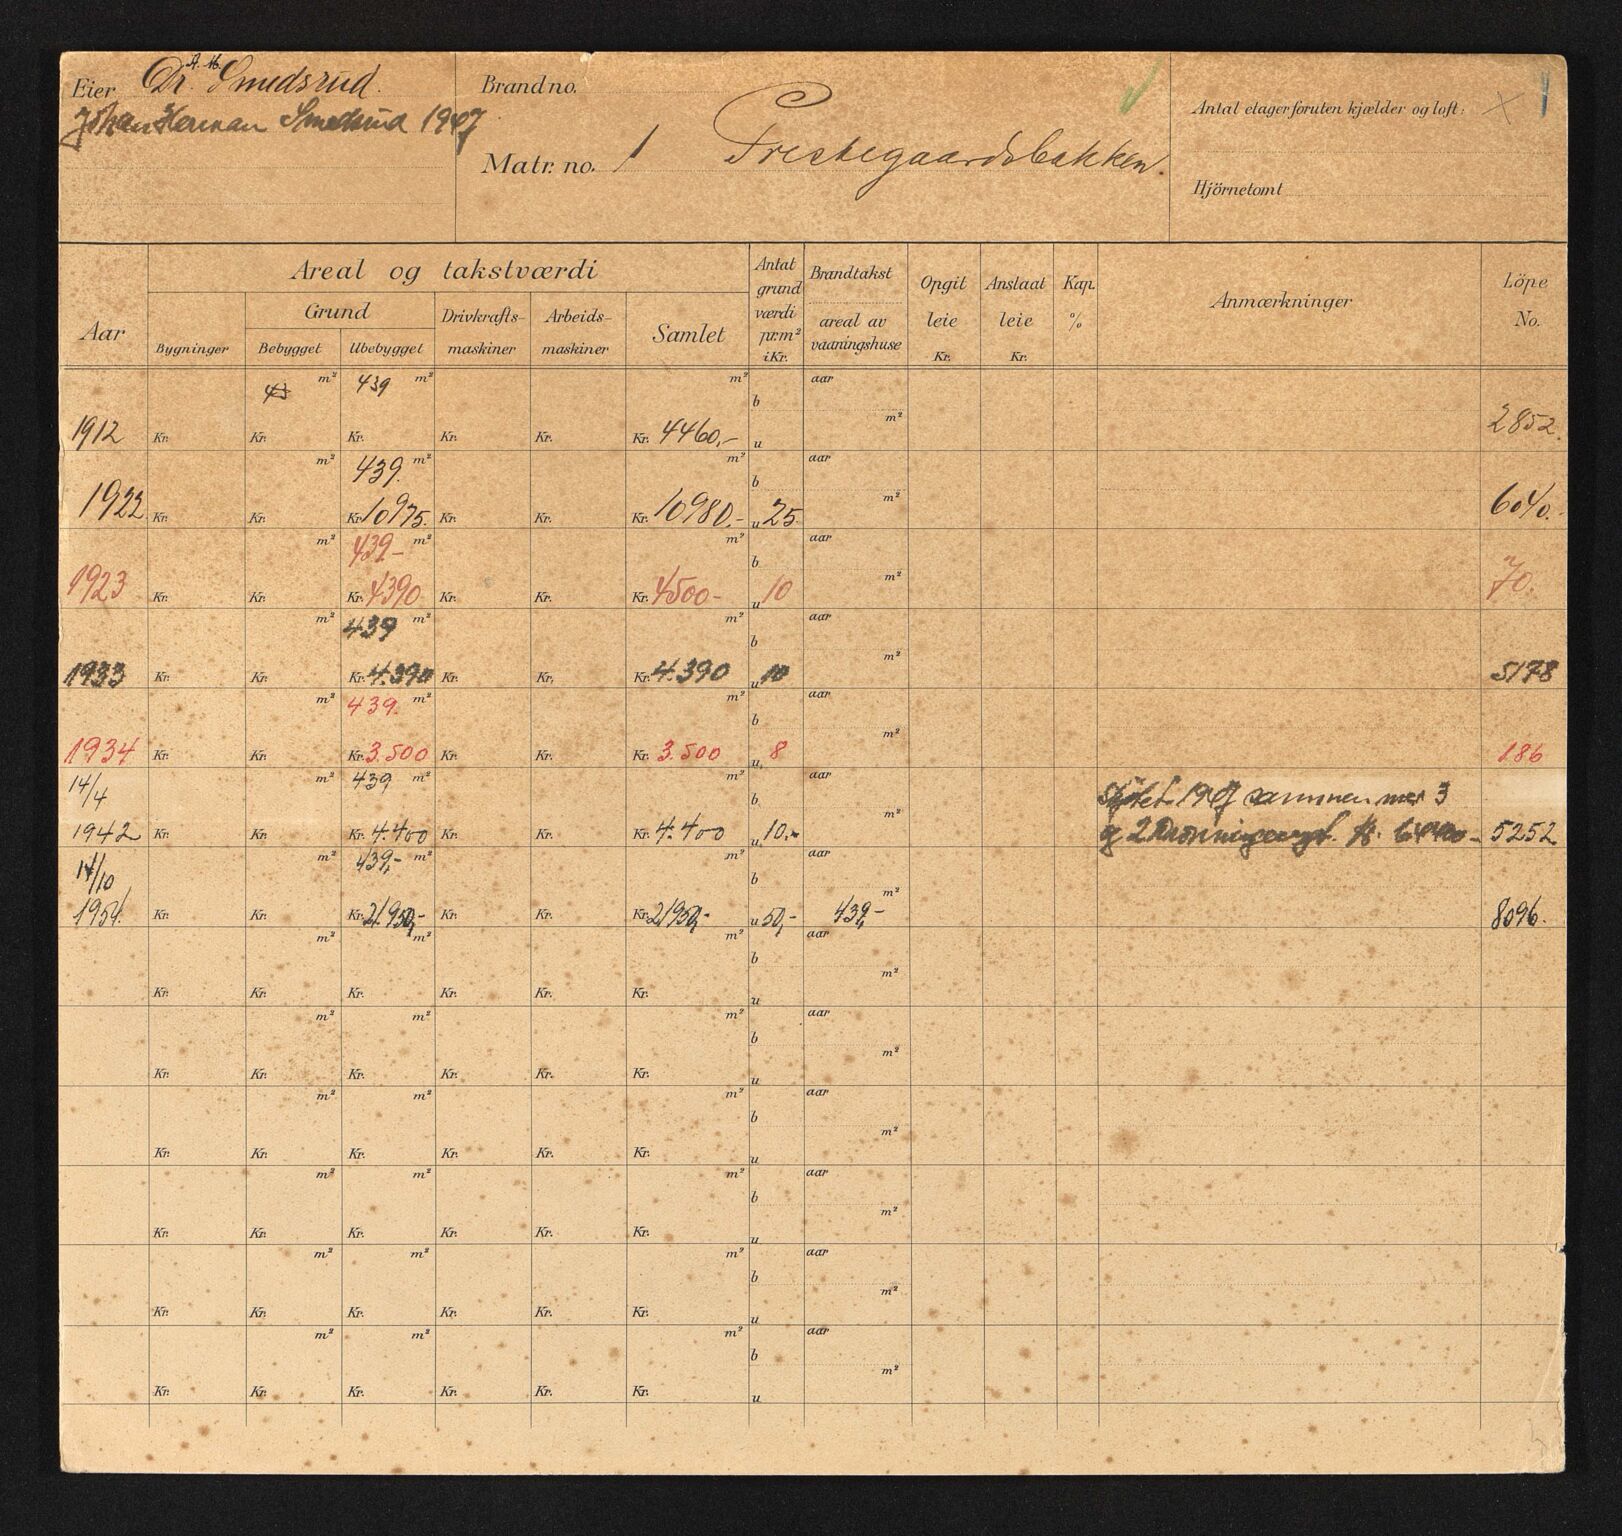 Eier Dr. A. M. Smedsrud.
Johan Herman Smedsrud 1947
Brand no.
Matr. no. 1 Prestegaardsbakken.
Antal etager foruten kjælder og loft: ×
Hjörnetomt
Aar
Areal og takstværdi
Grund
Bygninger
Bebygget
Ubebygget
Drivkrafts-maskiner
Arbeids-maskiner
Samlet
Antat grund værdi pr. m² i Kr.
Brandtakst
areal av vaaningshuse
Opgit leie Kr.
Anslaat leie Kr.
Kap. %
Anmærkninger
Löpe No.
m² 439 m² m² aar
b m²
1912 Kr. Kr. Kr. Kr. Kr. Kr. 4460,- u 2852.
m² 439. m² m² aar
b m²
1922 Kr. Kr. Kr. 10975. Kr. Kr. Kr. 10980.- u 25. 6040.-
m² 439- m² m² aar
b m²
1923 Kr. Kr. Kr. 4390 Kr. Kr. Kr. 4500- u 10 70.
m² 439 m² m² aar
b m²
1933 Kr. Kr. Kr. 4.390 Kr. Kr. Kr. 4.390 u 10 5178
m² 439. m² m² aar
b m²
1934 Kr. Kr. Kr. 3.500 Kr. Kr. Kr. 3.500 u 8 186
14/4 m² 439 m² m² aar
b m² Skjötet 1947 sammen med 3
1942 Kr. Kr. Kr. 4.400 Kr. Kr. Kr. 4.400 u 10.- og 2 Dronningensgt. 5252
14/10 m² 439,- m² m² aar
b m²
1954. Kr. Kr. Kr. 21.950,- Kr. Kr. Kr. 21950,- u 50,- 439,- 8096.
m² m² m² aar
b m²
Kr. Kr. Kr. Kr. Kr. Kr. u
m² m² m² aar
b m²
Kr. Kr. Kr. Kr. Kr. Kr. u
m² m² m² aar
b m²
Kr. Kr. Kr. Kr. Kr. Kr. u
m² m² m² aar
b m²
Kr. Kr. Kr. Kr. Kr. Kr. u
m² m² m² aar
b m²
Kr. Kr. Kr. Kr. Kr. Kr. u
m² m² m² aar
b m²
Kr. Kr. Kr. Kr. Kr. Kr. u